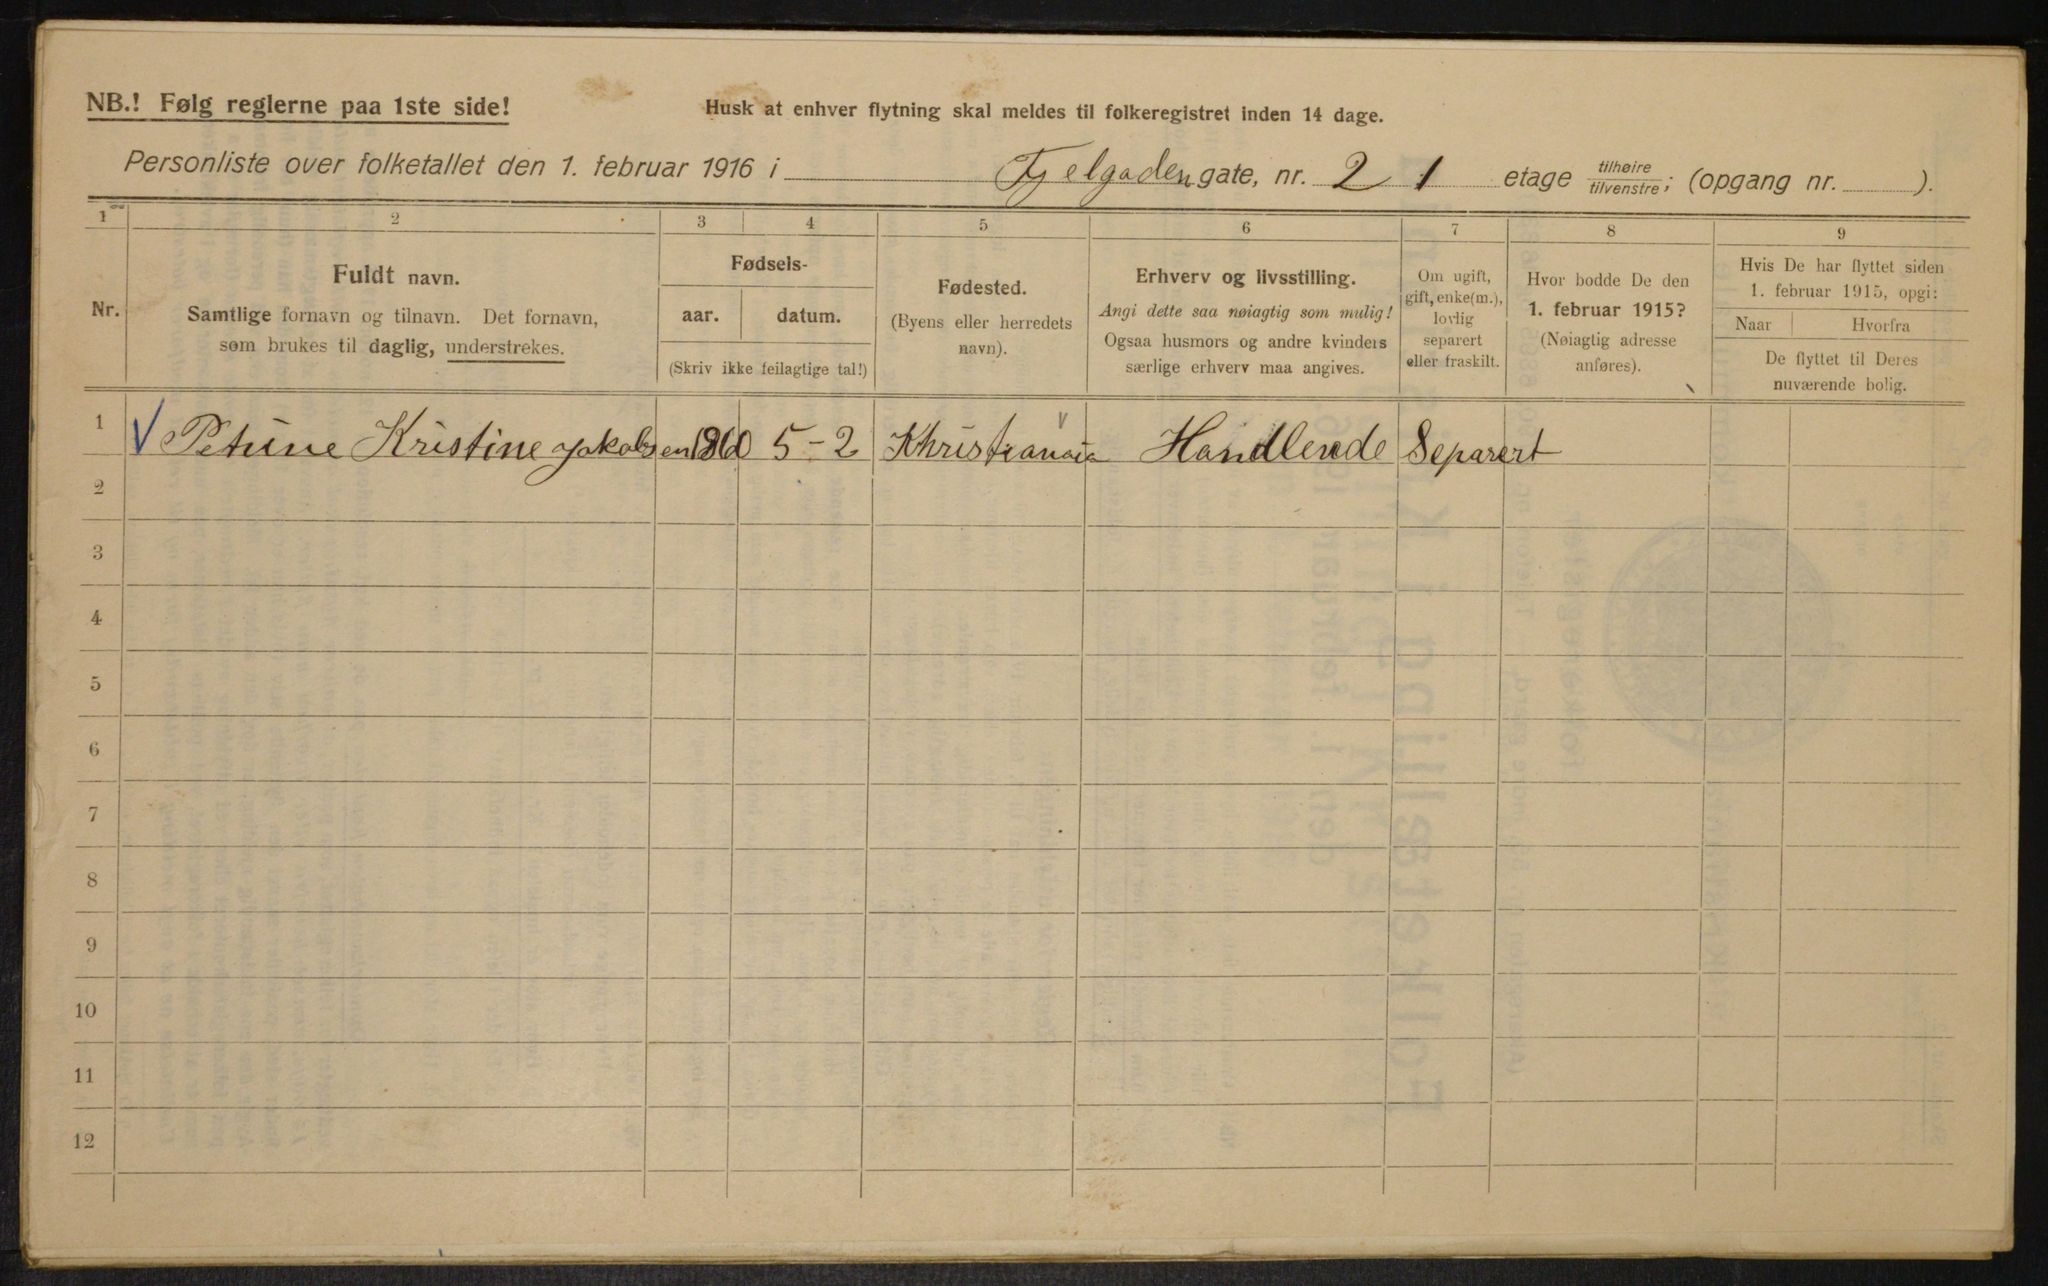 NB.! Følg reglerne paa 1ste side!
Husk at enhver flytning skal meldes til folkeregistret inden 14 dage.
Personliste over folketallet den 1. februar 1916 i Fjelgaden gate, nr. 2 1 etage tilhøire/tilvenstre; (opgang nr. ).
1 2 3 4 5 6 7 8 9
Nr.
Fuldt navn.
Samtlige fornavn og tilnavn. Det fornavn,
som brukes til daglig, understrekes.
Fødsels-
aar. datum.
(Skriv ikke feilagtige tal!)
Fødested.
(Byens eller herredets
navn).
Erhverv og livsstilling.
Angi dette saa nøiagtig som mulig!
Ogsaa husmors og andre kvinders
særlige erhverv maa angives.
Om ugift,
gift, enke(m.),
lovlig
separert
eller fraskilt.
Hvor bodde De den
1. februar 1915?
(Nøiagtig adresse
anføres).
Hvis De har flyttet siden
1. februar 1915, opgi:
Naar Hvorfra
De flyttet til Deres
nuværende bolig.
1 Petrine Kristine Jakobsen 1860 5-2 Khristiania Handlende Separert
2
3
4
5
6
7
8
9
10
11
12